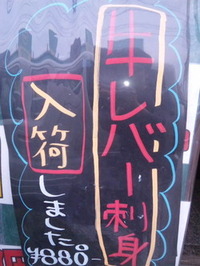 牛レバー刺身
入荷
しました。
¥880-